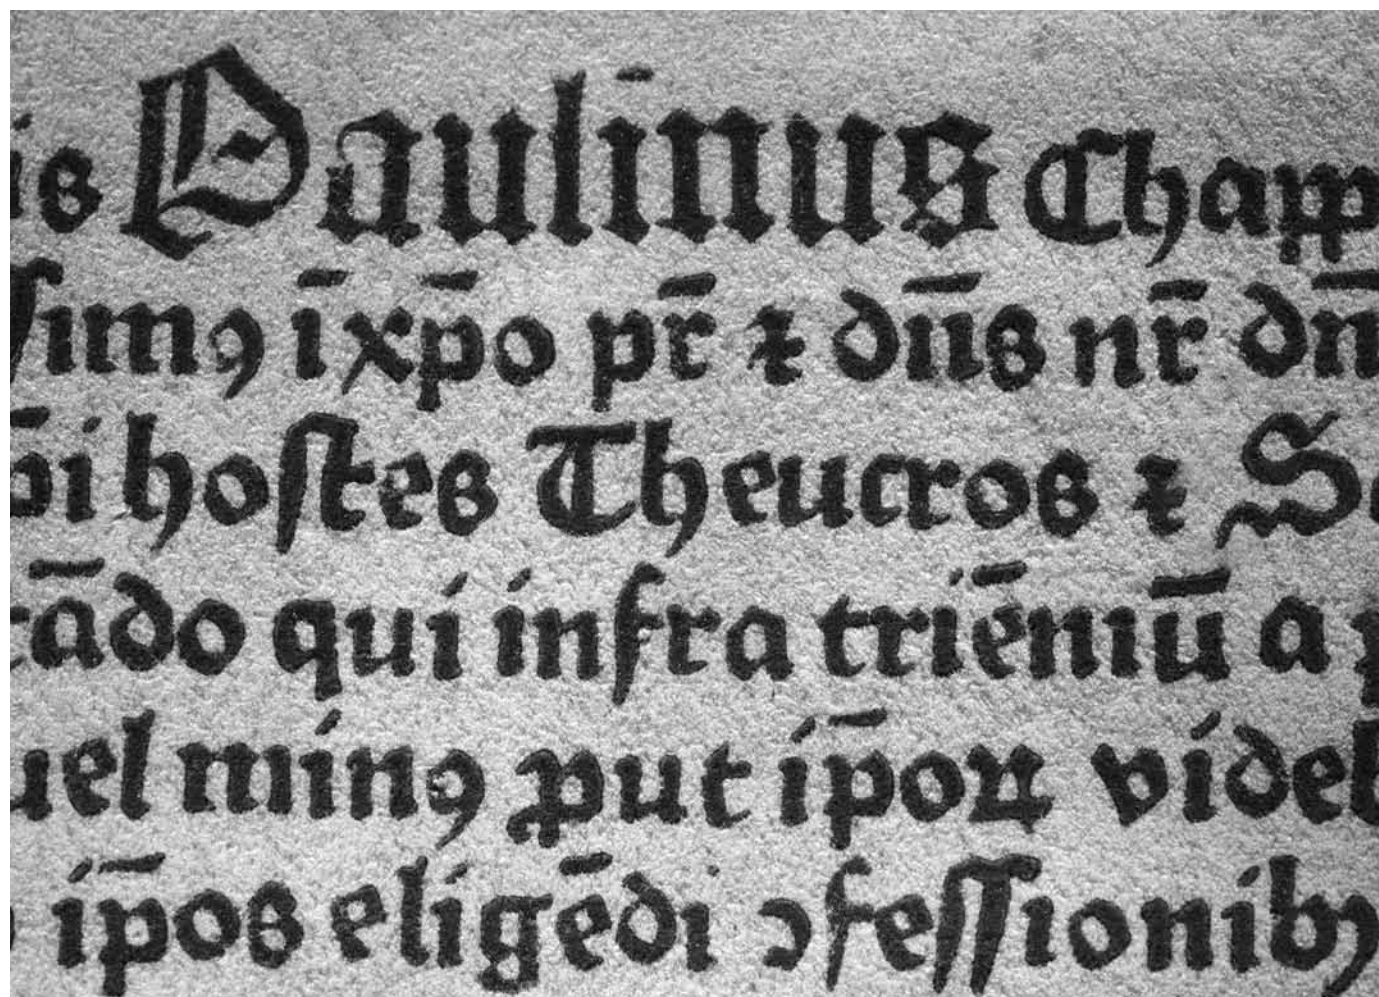 is Paulinus Chapp
ſimꝰ īxp̄o pr̄ ⁊ dn̄s nr̄ dn̄
p̄i hoſtes Theucros ⁊ S
ādo qui infra triēniū a p
uel minꝰ ꝓut ip̄oꝝ videb
ip̄os eligēdi ꝯfeſſionibꝫ